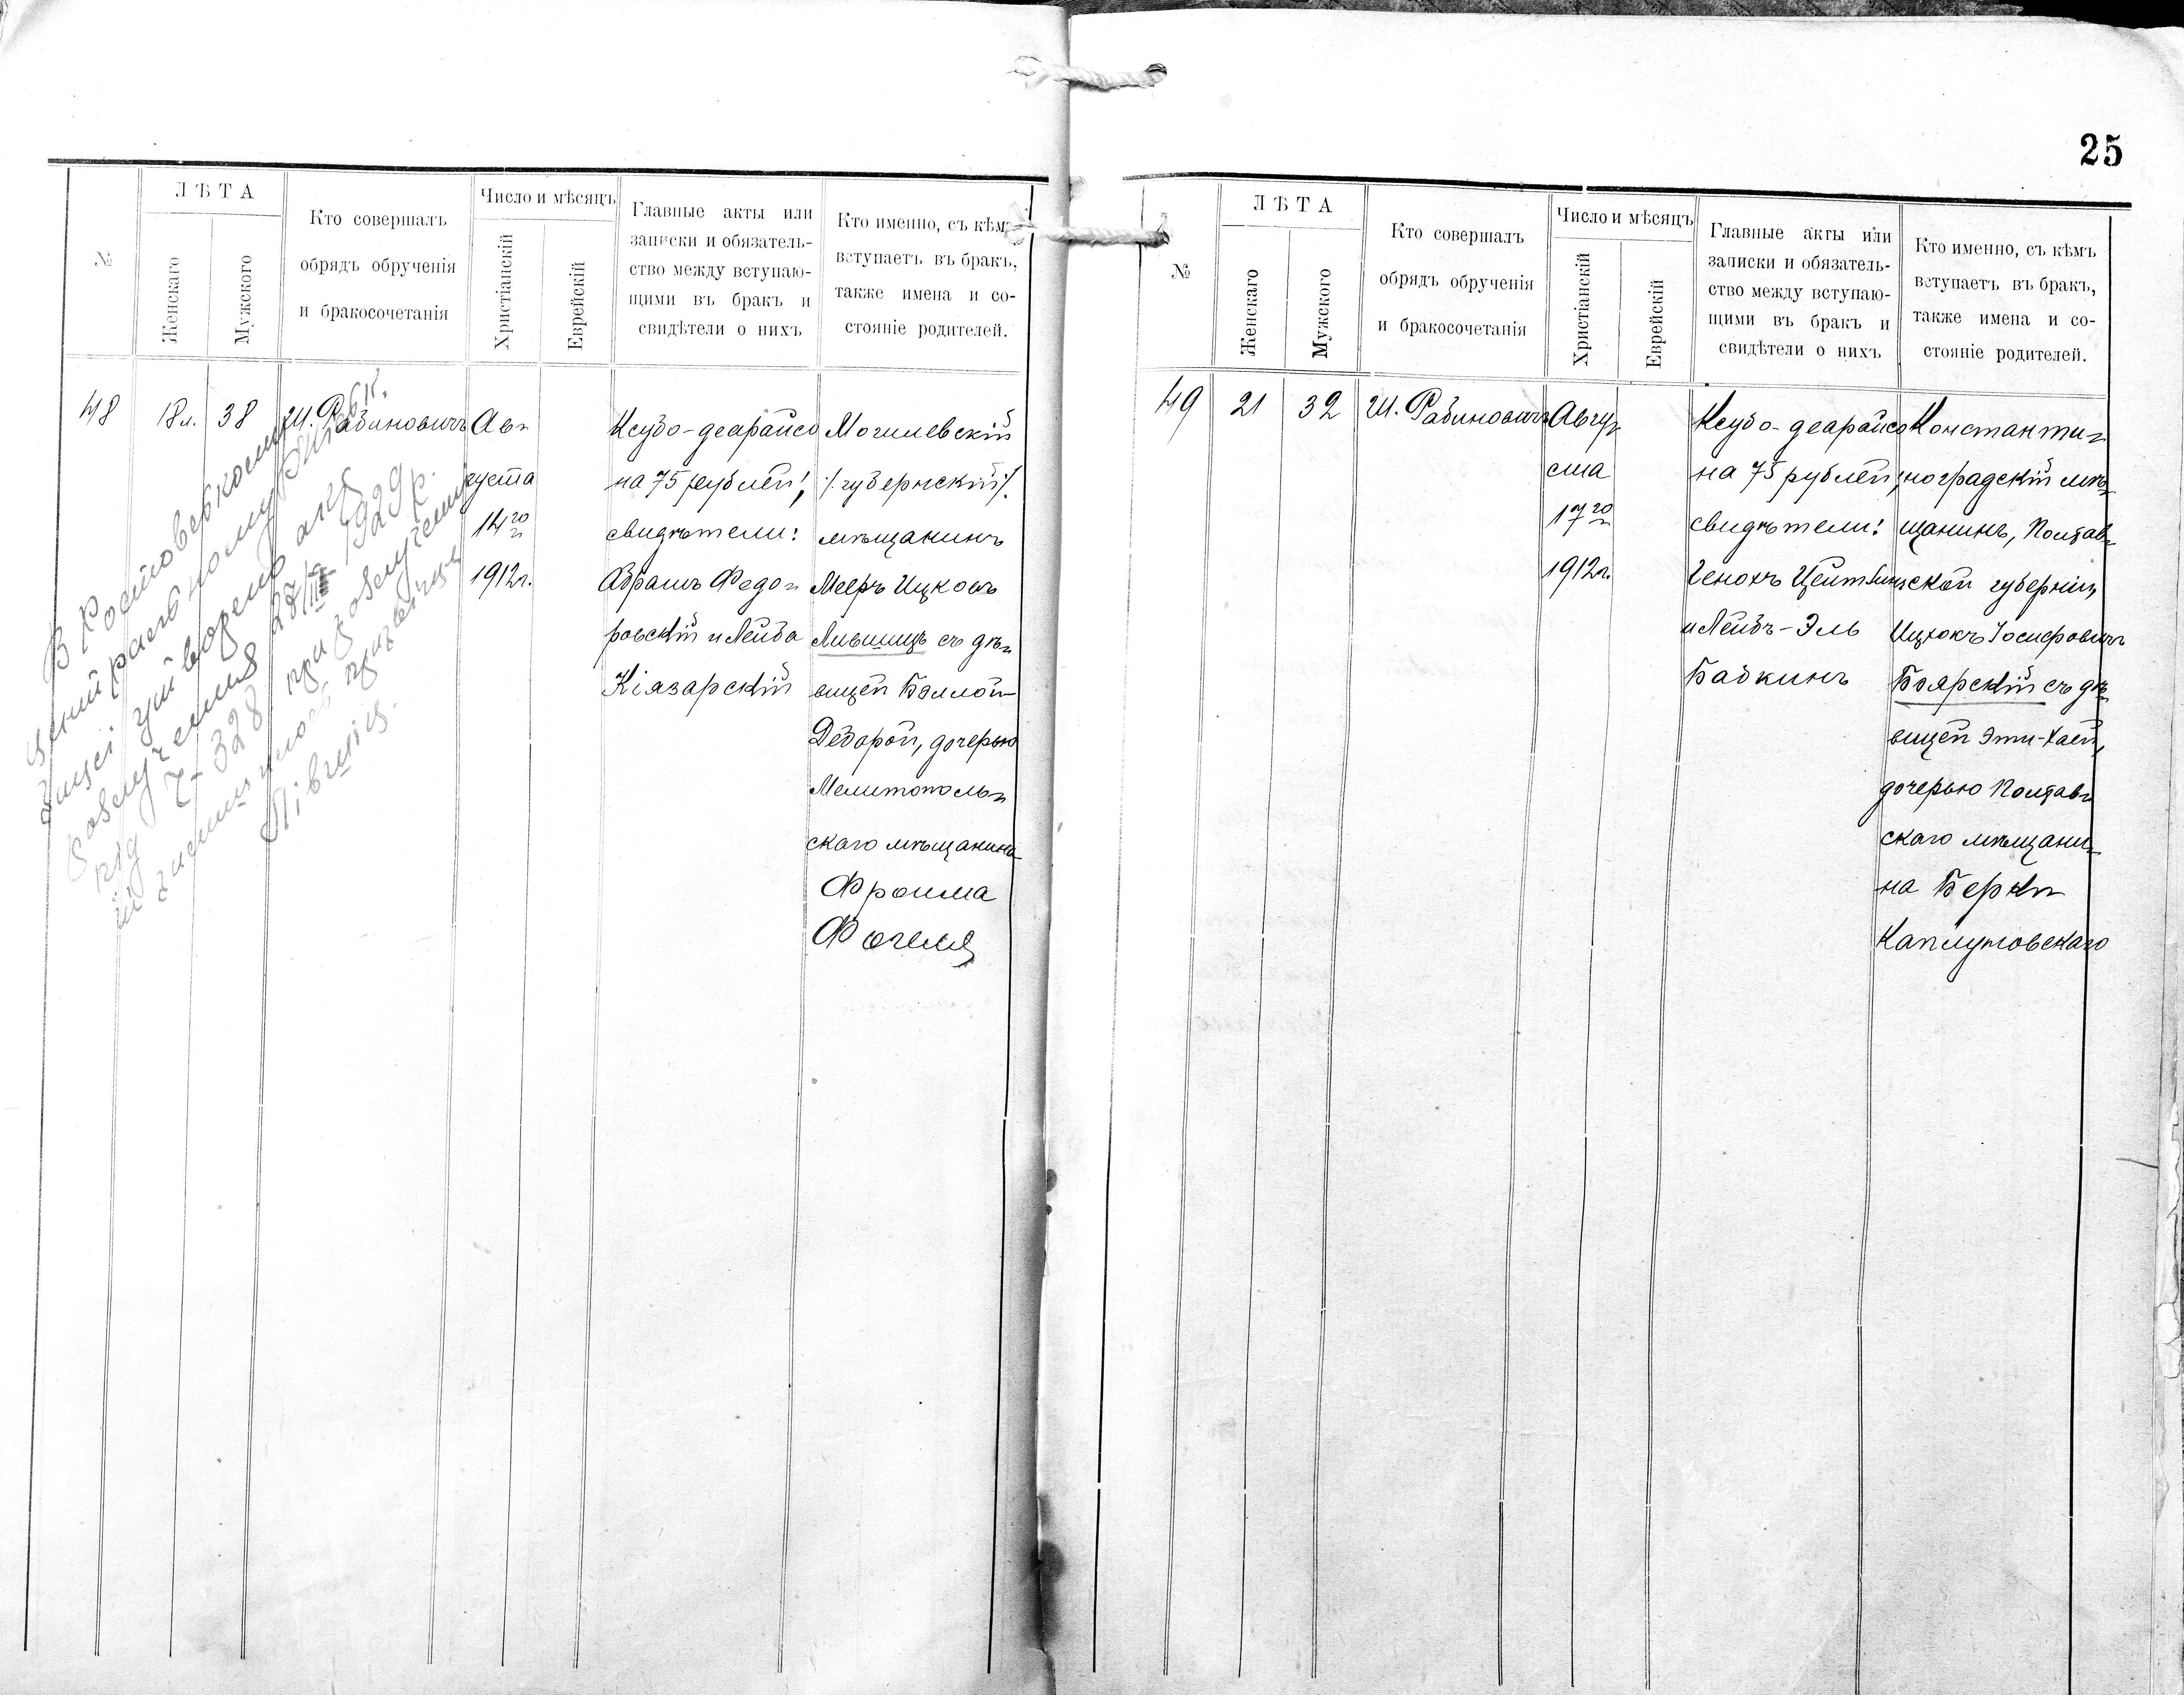 25
№
ЛѢТА
Женскаго
Мужского
Кто совершалъ
обрядъ обрученія
и бракосочетанія
Число и мѣсяцъ
Христіанскій
Еврейскій
Главные акты или
записки и обязатель-
ство между вступаю-
щими въ бракъ и
свидѣтели о нихъ
Кто именно, съ кѣмъ
вступаетъ въ бракъ,
также имена и со-
стояніе родителей.
48
18 л.
38
Ш. Рабиновичъ
Ав-
густа
14го
1912 г.
Ксубо-деарайсо
на 75 рублей;
свидѣтели:
Абрамъ Федо-
ровскій и Лейба
Кіязарскій
Могилевскій
/.губернскій/.
мѣщанинъ
Мееръ Ицковъ
Лившицъ съ дѣ-
вицей Бэллой-
Деборой, дочерью
Мелитополь-
скаго мѣщанина
Фроима
Фогеля
27/III 1929 р.
№
ЛѢТА
Женскаго
Мужского
Кто совершалъ
обрядъ обрученія
и бракосочетанія
Число и мѣсяцъ
Христіанскій
Еврейскій
Главные акты или
записки и обязатель-
ство между вступаю-
щими въ бракъ и
свидѣтели о нихъ
Кто именно, съ кѣмъ
вступаетъ въ бракъ,
также имена и со-
стояніе родителей.
49
21
32
Ш. Рабиновичъ
Авгу-
ста
17го
1912 г.
Ксубо-деарайсо
на 75 рублей;
свидѣтели:
Генохъ Цейтлинъ
и Лейбъ-Эль
Бабкинъ
Константи-
ноградскій мѣ-
щанинъ, Полтав-
ской губерніи,
Ицхокъ Іосифовичъ
Боярскій съ дѣ-
вицей Эти-Хаей,
дочерью Полтав-
скаго мѣщани-
на Берки
Каплуновскаго